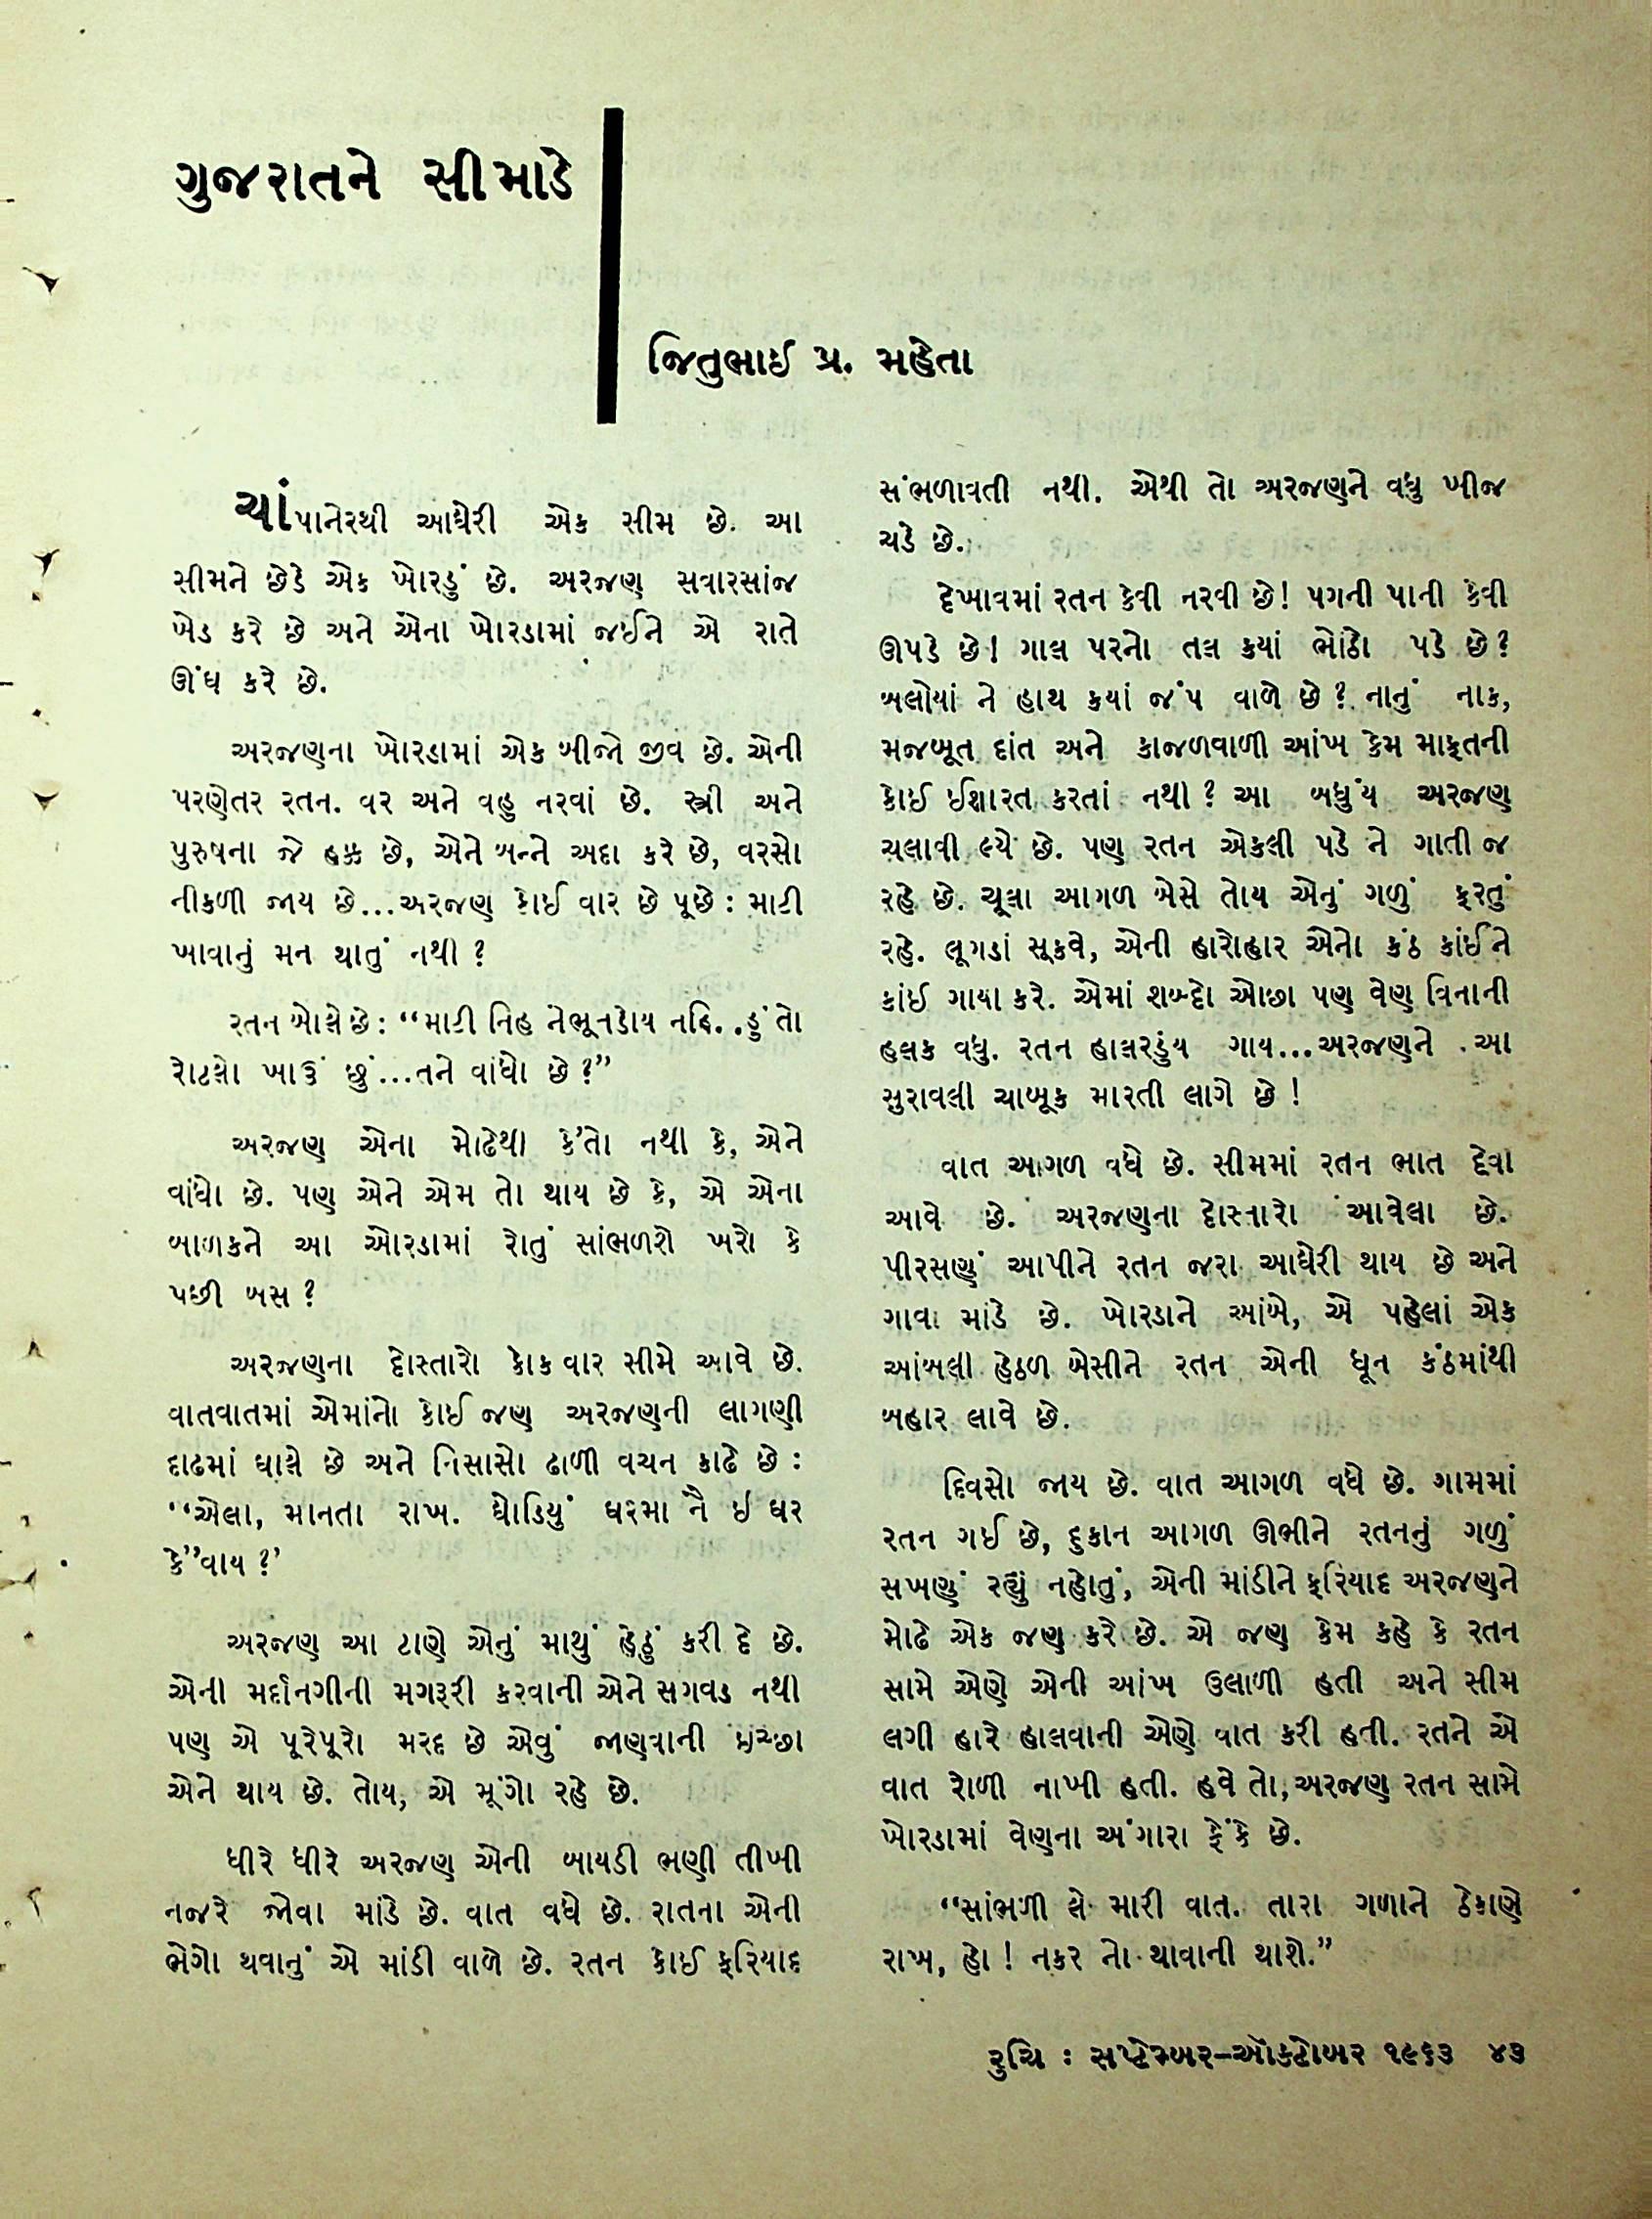 ગુજરાતને સીમાડે
જિતુભાઈ પ્ર. મહેતા
ચાંપાનેરથી આઘેરી એક સીમ છે. આ
સીમને છેડે એક ખોરડું છે. અરજણ સવારસાંજ
ખેડ કરે છે અને એના ખોરડામાં જઈને એ રાતે
ઊંઘ કરે છે.
અરજણના ખોરડામાં એક બીજો જીવ છે. એની
પરણેતર રતન. વર અને વહુ નરવાં છે. સ્ત્રી અને
પુરુષના જે હક્ક છે, એને બન્ને અદા કરે છે, વરસો
નીકળી જાય છે...અરજણ કોઈ વાર છે પૂછે : માટી
ખાવાનું મન થાતું નથી ?
રતન બોલે છે : “માટી નિહ નેભૂતડોય નહિ..હું તો
રોટલો ખાઉં છું...તને વાંધો છે ?”
અરજણ એના મોઢેથી કે’તો નથી કે, એને
વાંધો છે. પણ એને એમ તો થાય છે કે, એ એના
બાળકને આ ઓરડામાં રોતું સાંભળશે ખરો કે
પછી બસ ?
અરજણના દોસ્તારો કોક વાર સીમે આવે છે.
વાતવાતમાં એમાંનો કોઈ જણ અરજણની લાગણી
દાઢમાં ઘાલે છે અને નિસાસો ઢાળી વચન કાઢે છે :
“એલા, માનતા રાખ. ઘોડિયું ઘરમા નૈ ઈ ઘર
કે”વાય ?’
અરજણ આ ટાણે એનું માથું હેઠું કરી દે છે.
એની મર્દાનગીની મગરૂરી કરવાની એને સગવડ નથી
પણ એ પૂરેપૂરો મરદ છે એવું જાણવાની ઇચ્છા
એને થાય છે. તોય, એ મૂંગો રહે છે.
ધીરે ધીરે અરજણ એની બાયડી ભણી તીખી
નજરે જોવા માંડે છે. વાત વધે છે. રાતના એની
ભેગો થવાનું એ માંડી વાળે છે. રતન કોઈ ફરિયાદ
સંભળાવતી નથી. એથી તો અરજણને વધુ ખીજ
ચડે છે.
દેખાવમાં રતન કેવી નરવી છે! પગની પાની કેવી
ઊપડે છે! ગાલ પરનો તલ કયાં ભોંઠો પડે છે?
બલોયાં ને હાથ કયાં જંપ વાળે છે ? નાનું નાક,
મજબૂત દાંત અને કાજળવાળી આંખ કેમ માફતની
કોઈ ઈશારત કરતાં નથી ? આ બધુંય અરજણ
ચલાવી લ્યે છે. પણ રતન એકલી પડે ને ગાતી જ
રહે છે. ચૂલા આગળ બેસે તોય એનું ગળું ફરતું
રહે. લૂગડાં સૂકવે, એની હારોહાર એનો કંઠ કાંઈને
કાંઈ ગાયા કરે. એમાં શબ્દો ઓછા પણ વેણ વિનાની
હલક વધુ. રતન હાલરડુંય ગાય...અરજણને આ
સુરાવલી ચાબૂક મારતી લાગે છે !
વાત આગળ વધે છે. સીમમાં રતન ભાત દેવા
આવે છે. અરજણના દોસ્તારો આવેલા છે.
પીરસણું આપીને રતન જરા આઘેરી થાય છે અને
ગાવા માંડે છે. ખોરડાને આંબે, એ પહેલાં એક
આંબલી હેઠળ બેસીને રતન એની ધૂન કંઠમાંથી
બહાર લાવે છે.
દિવસો જાય છે. વાત આગળ વધે છે. ગામમાં
રતન ગઈ છે, દુકાન આગળ ઊભીને રતનનું ગળું
સખણું રહ્યું નહોતું, એની માંડીને ફરિયાદ અરજણને
મોઢે એક જણ કરે છે. એ જણ કેમ કહે કે રતન
સામે એણે એની આંખ ઉલાળી હતી અને સીમ
લગી હારે હાલવાની એણે વાત કરી હતી. રતને એ
વાત રોળી નાખી હતી. હવે તો, અરજણ રતન સામે
ખોરડામાં વેણના અંગારા ફેંકે છે.
“સાંભળી લે મારી વાત. તારા ગળાને ઠેકાણે
રાખ, હો ! નકર નો થાવાની થાશે.”
રુચિ : સપ્ટેમ્બર–ઑક્ટોબર ૧૯૬૩ ૪૩